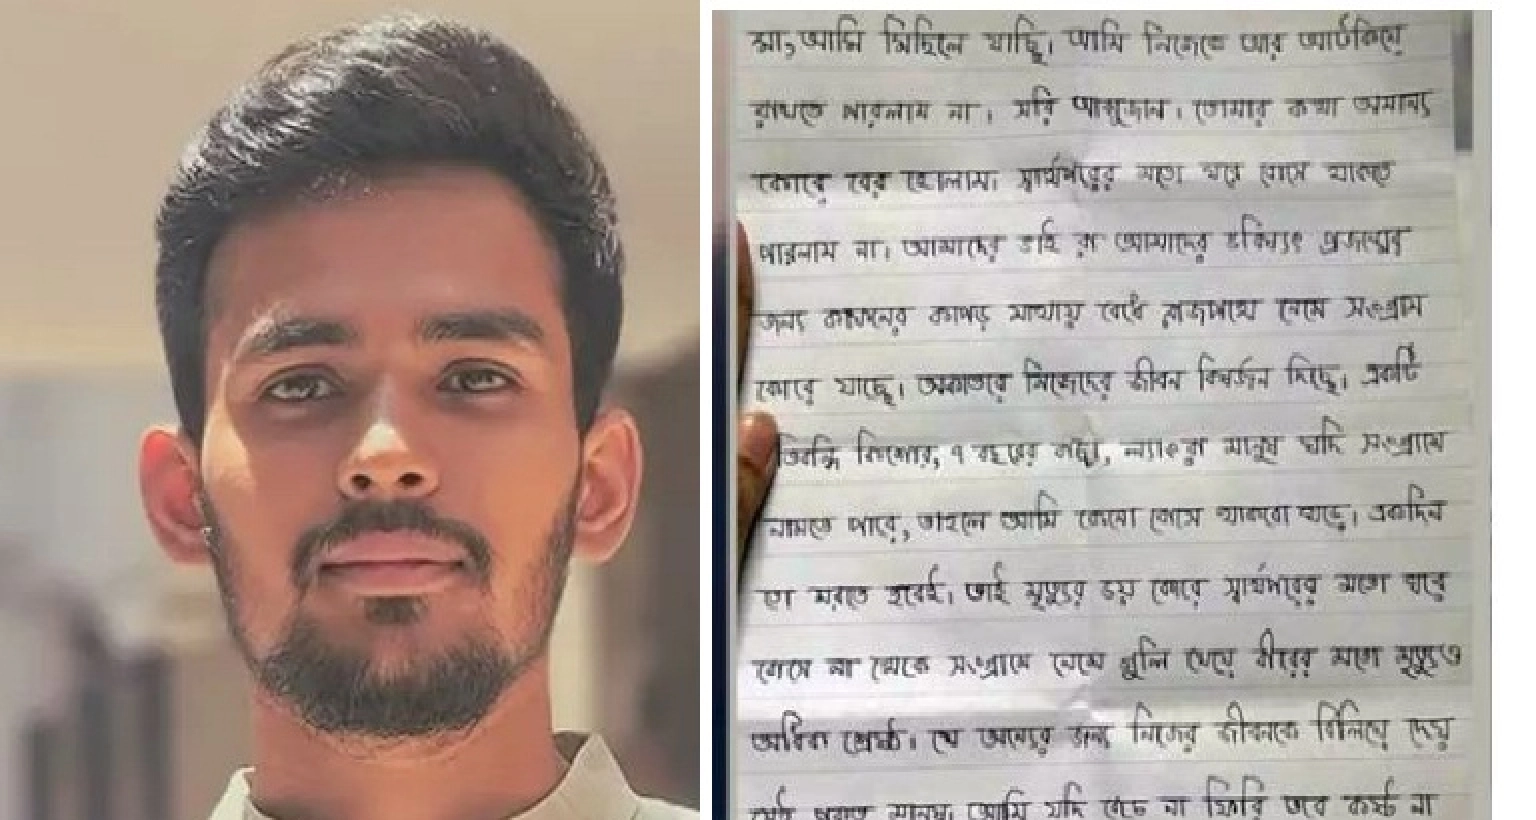 মা, আমি মিছিলে যাচ্ছি। আমি নিজেকে আর আটকিয়ে
রাখতে পারলাম না। সরি আব্বুজান। তোমার কথা অমান্য
কোরে বের হোলাম। স্বার্থপরের মতো ঘরে বোসে থাকতে
পারলাম না। আমাদের ভাই রা আমাদের ভবিষ্যৎ প্রজন্মের
জন্য কাফনের কাপড় মাথায় বেঁধে রাজপথে নেমে সংগ্রাম
কোরে যাচ্ছে। অকাতরে নিজেদের জীবন বিসর্জন দিচ্ছে। একটি
তিবন্ধি কিশোর, ৭ বছরের বাচ্চা, ল্যাংড়া মানুষ যদি সংগ্রামে
নামতে পারে, তাহলে আমি কেনো বোসে থাকবো ঘরে। একদিন
তো মরতে হবেই। তাই মৃত্যুর ভয় কোরে স্বার্থপরের মতো ঘরে
বোসে না থেকে সংগ্রামে নেমে গুলি খেয়ে বীরের মতো মৃত্যুও
অধিক শ্রেষ্ঠ। যে অন্যের জন্য নিজের জীবনকে বিলিয়ে দেয়
সেই প্রকৃত মানুষ। আমি যদি বেঁচে না ফিরি তবে কষ্ট না